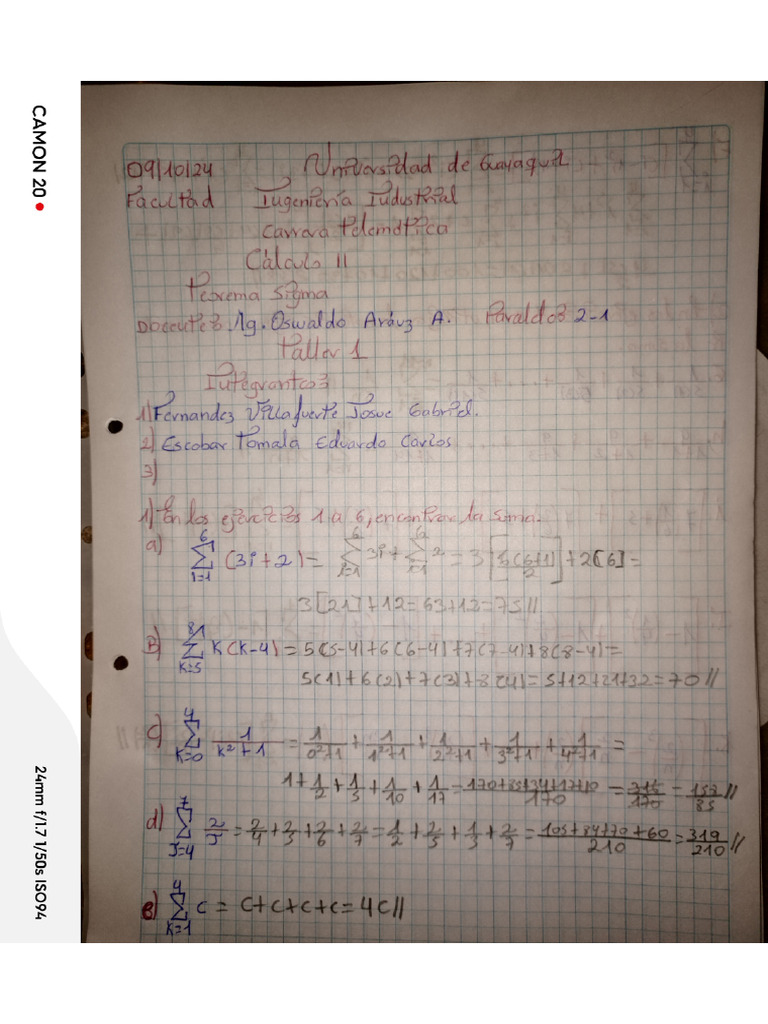 CAMON 20
24mm f/1.7 1/50s ISO94
09/10/24 Universidad de Guayaquil
Facultad Ingeniería Industrial
Carrera telemática
Cálculo II
Teorema Sigma
Docente: Mg. Oswaldo Aráuz A. Paralelo: 2-1
Taller 1
Integrantes:
1) Fernandez Villafuerte Josue Gabriel.
2) Escobar Tomala Eduardo Carlos
3)
1) En los ejercicios 1 a 6, encontrar la suma.
a) ∑_{i=1}^{6} (3i+2) = ∑_{i=1}^{6} 3i + ∑_{i=1}^{6} 2 = 3[6(6+1)/2] + 2[6] =
3[21]+12=63+12=75//
B) ∑_{k=5}^{8} k(k-4) = 5(5-4)+6(6-4)+7(7-4)+8(8-4)=
5(1)+6(2)+7(3)+8(4)=5+12+21+32=70//
c) ∑_{k=0}^{4} 1/(k²+1) = 1/(0²+1) + 1/(1²+1) + 1/(2²+1) + 1/(3²+1) + 1/(4²+1) =
1+1/2+1/5+1/10+1/17=(170+85+34+17+10)/170=316/170=158/85//
d) ∑_{J=4}^{7} 2/J = 2/4+2/5+2/6+2/7=1/2+2/5+1/3+2/7=(105+84+70+60)/210=319/210//
e) ∑_{k=1}^{4} c = C+C+C+C=4C//